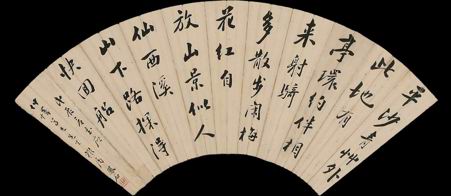 平沙青艸外
此地有
亭環約伴相
来射騎
多散步闲梅
花紅自
放山景似人
仙西溪
山下路探得
快回船